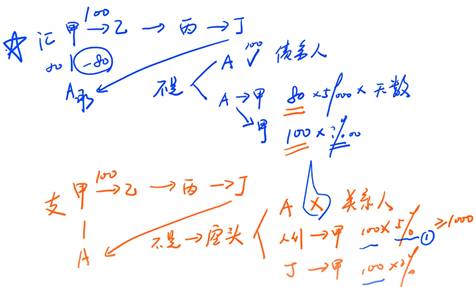 ☆ 汇 甲 100→ 乙 → 丙 → 丁
-80
A
不是
A 100 ✓ 债务人
A → 甲 80 × 5/000 × 天数
甲 100 ×
支 甲 100→ 乙 → 丙 → 丁
A
不是 → 空头
A × 关系人
人行 → 甲 100 × 5% ① ≥ 1000
丁 → 甲 100 × 2%